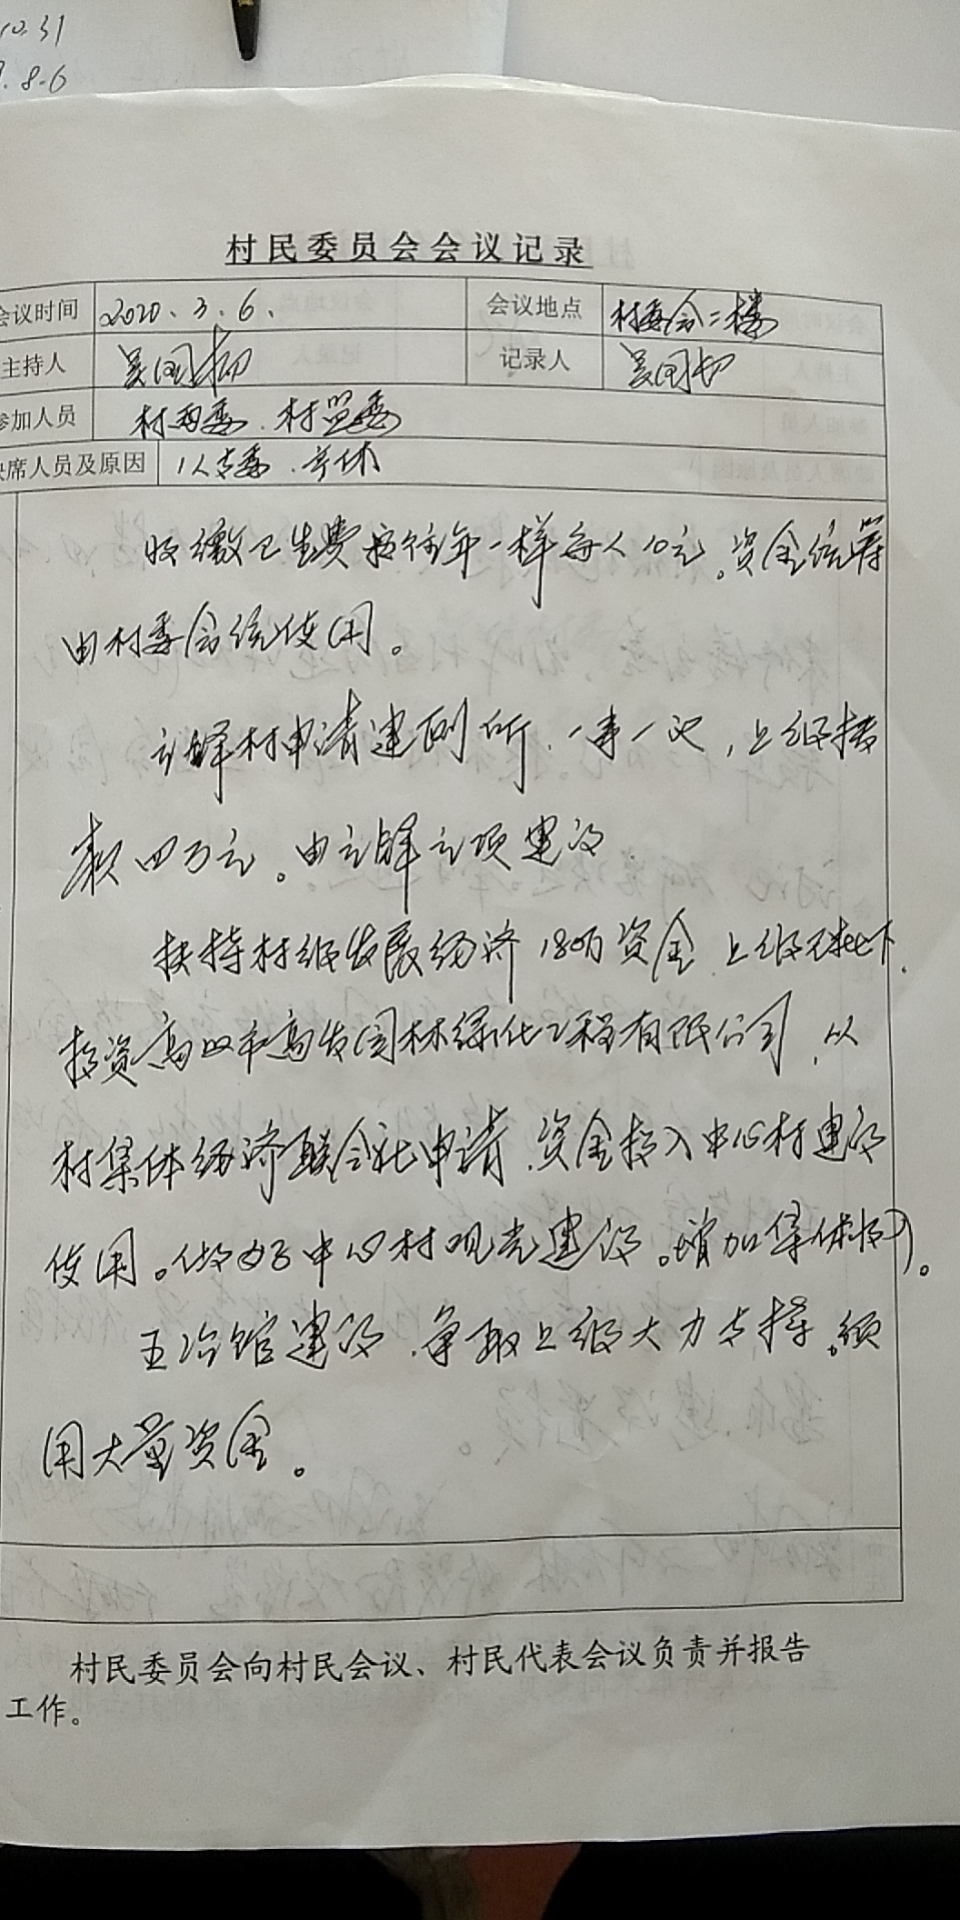 10.31
8.6
村民委员会会议记录
会议时间 2020.3.6. 会议地点 村委会二楼
主持人 吴国切 记录人 吴国切
参加人员 村两委、村监委
缺席人员及原因 1人支委、
收缴卫生费按往年一样每人10元。资金统筹
由村委会统使用。
立解村申请建厕所,一事一议,上级拨
款四万元。由立解立项建设
扶持村级发展经济180万资金,上级已批下,
投资高 市高发园林绿化工程有限公司,以
村集体经济联合社申请,资金投入中心村建设
使用。做好中心村观光建设。增加集体收入。
建设,争取上级大力支持。须
用大量资金。
村民委员会向村民会议、村民代表会议负责并报告
工作。